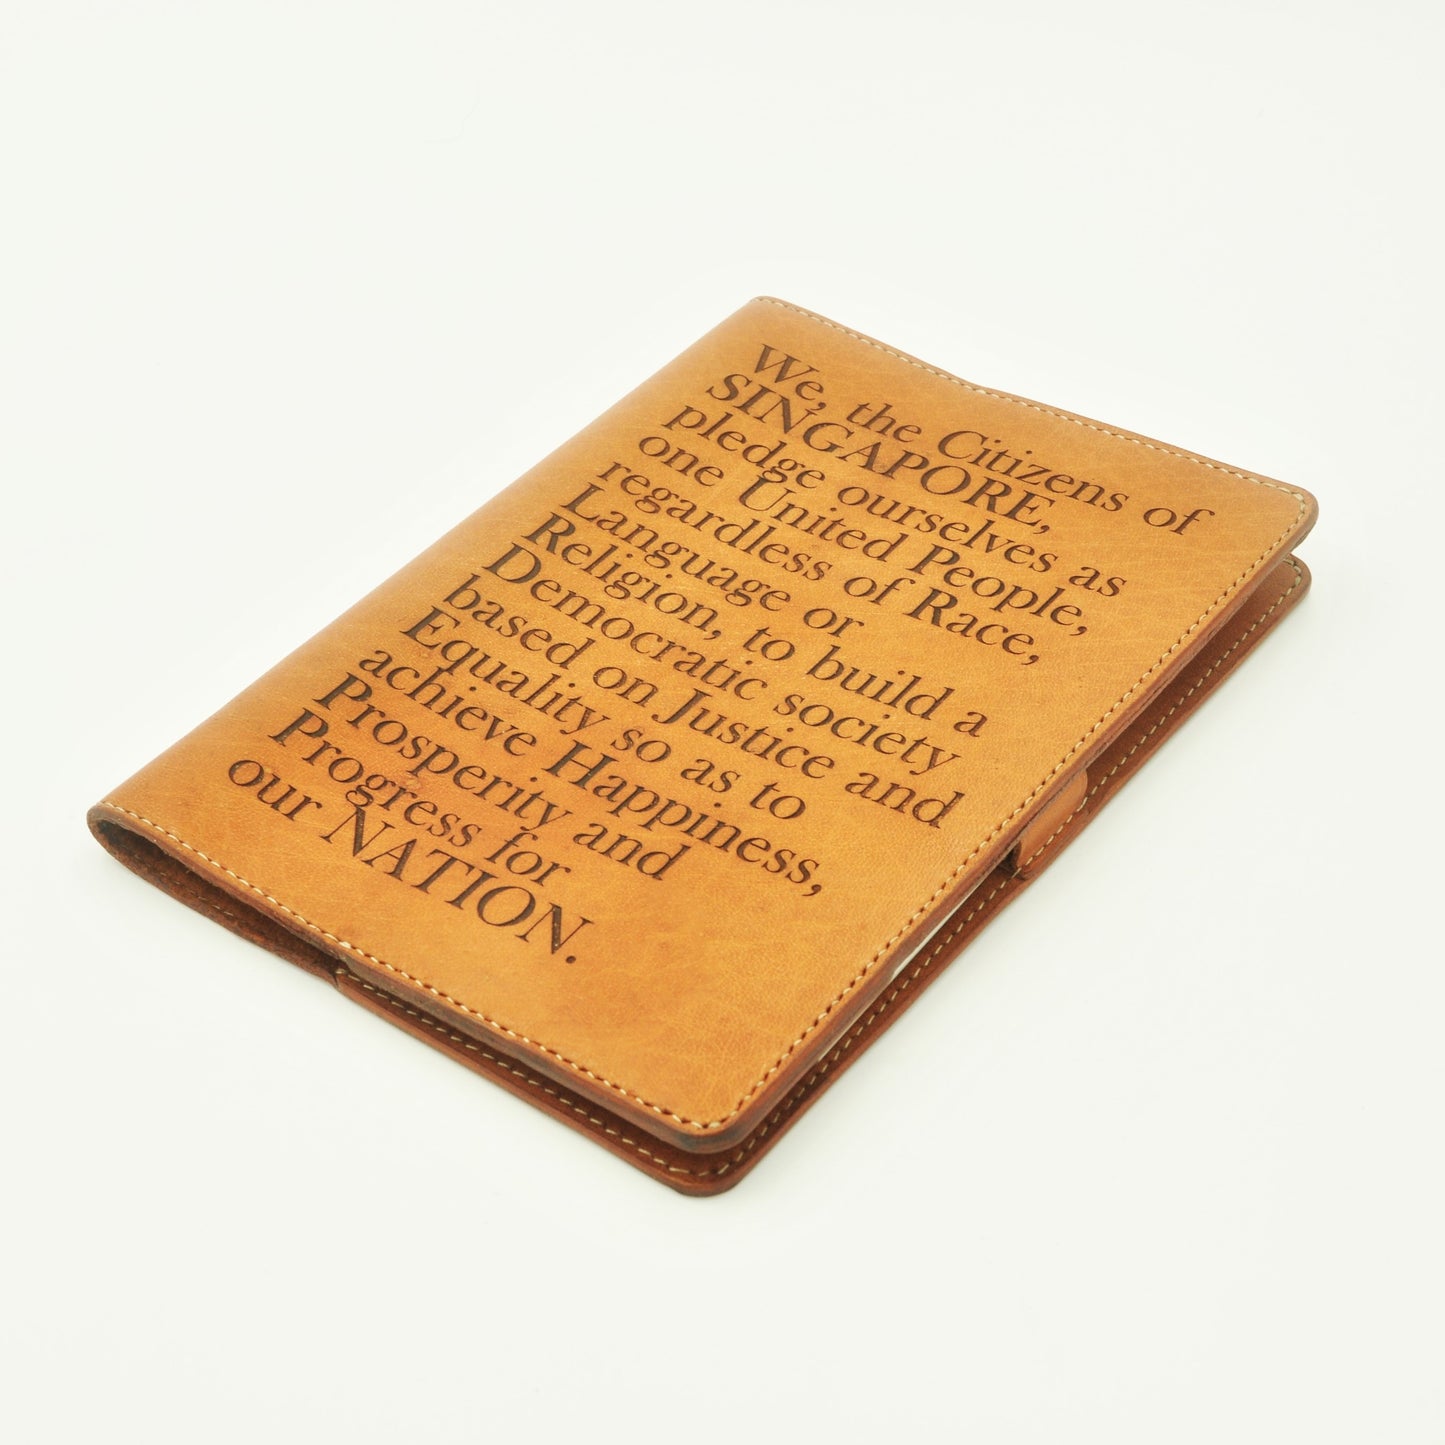 We, the Citizens of
SINGAPORE,
pledge ourselves as
one United People,
regardless of Race,
Language or
Religion, to build a
Democratic society
based on Justice and
Equality so as to
achieve Happiness,
Prosperity and
Progress for
our NATION.